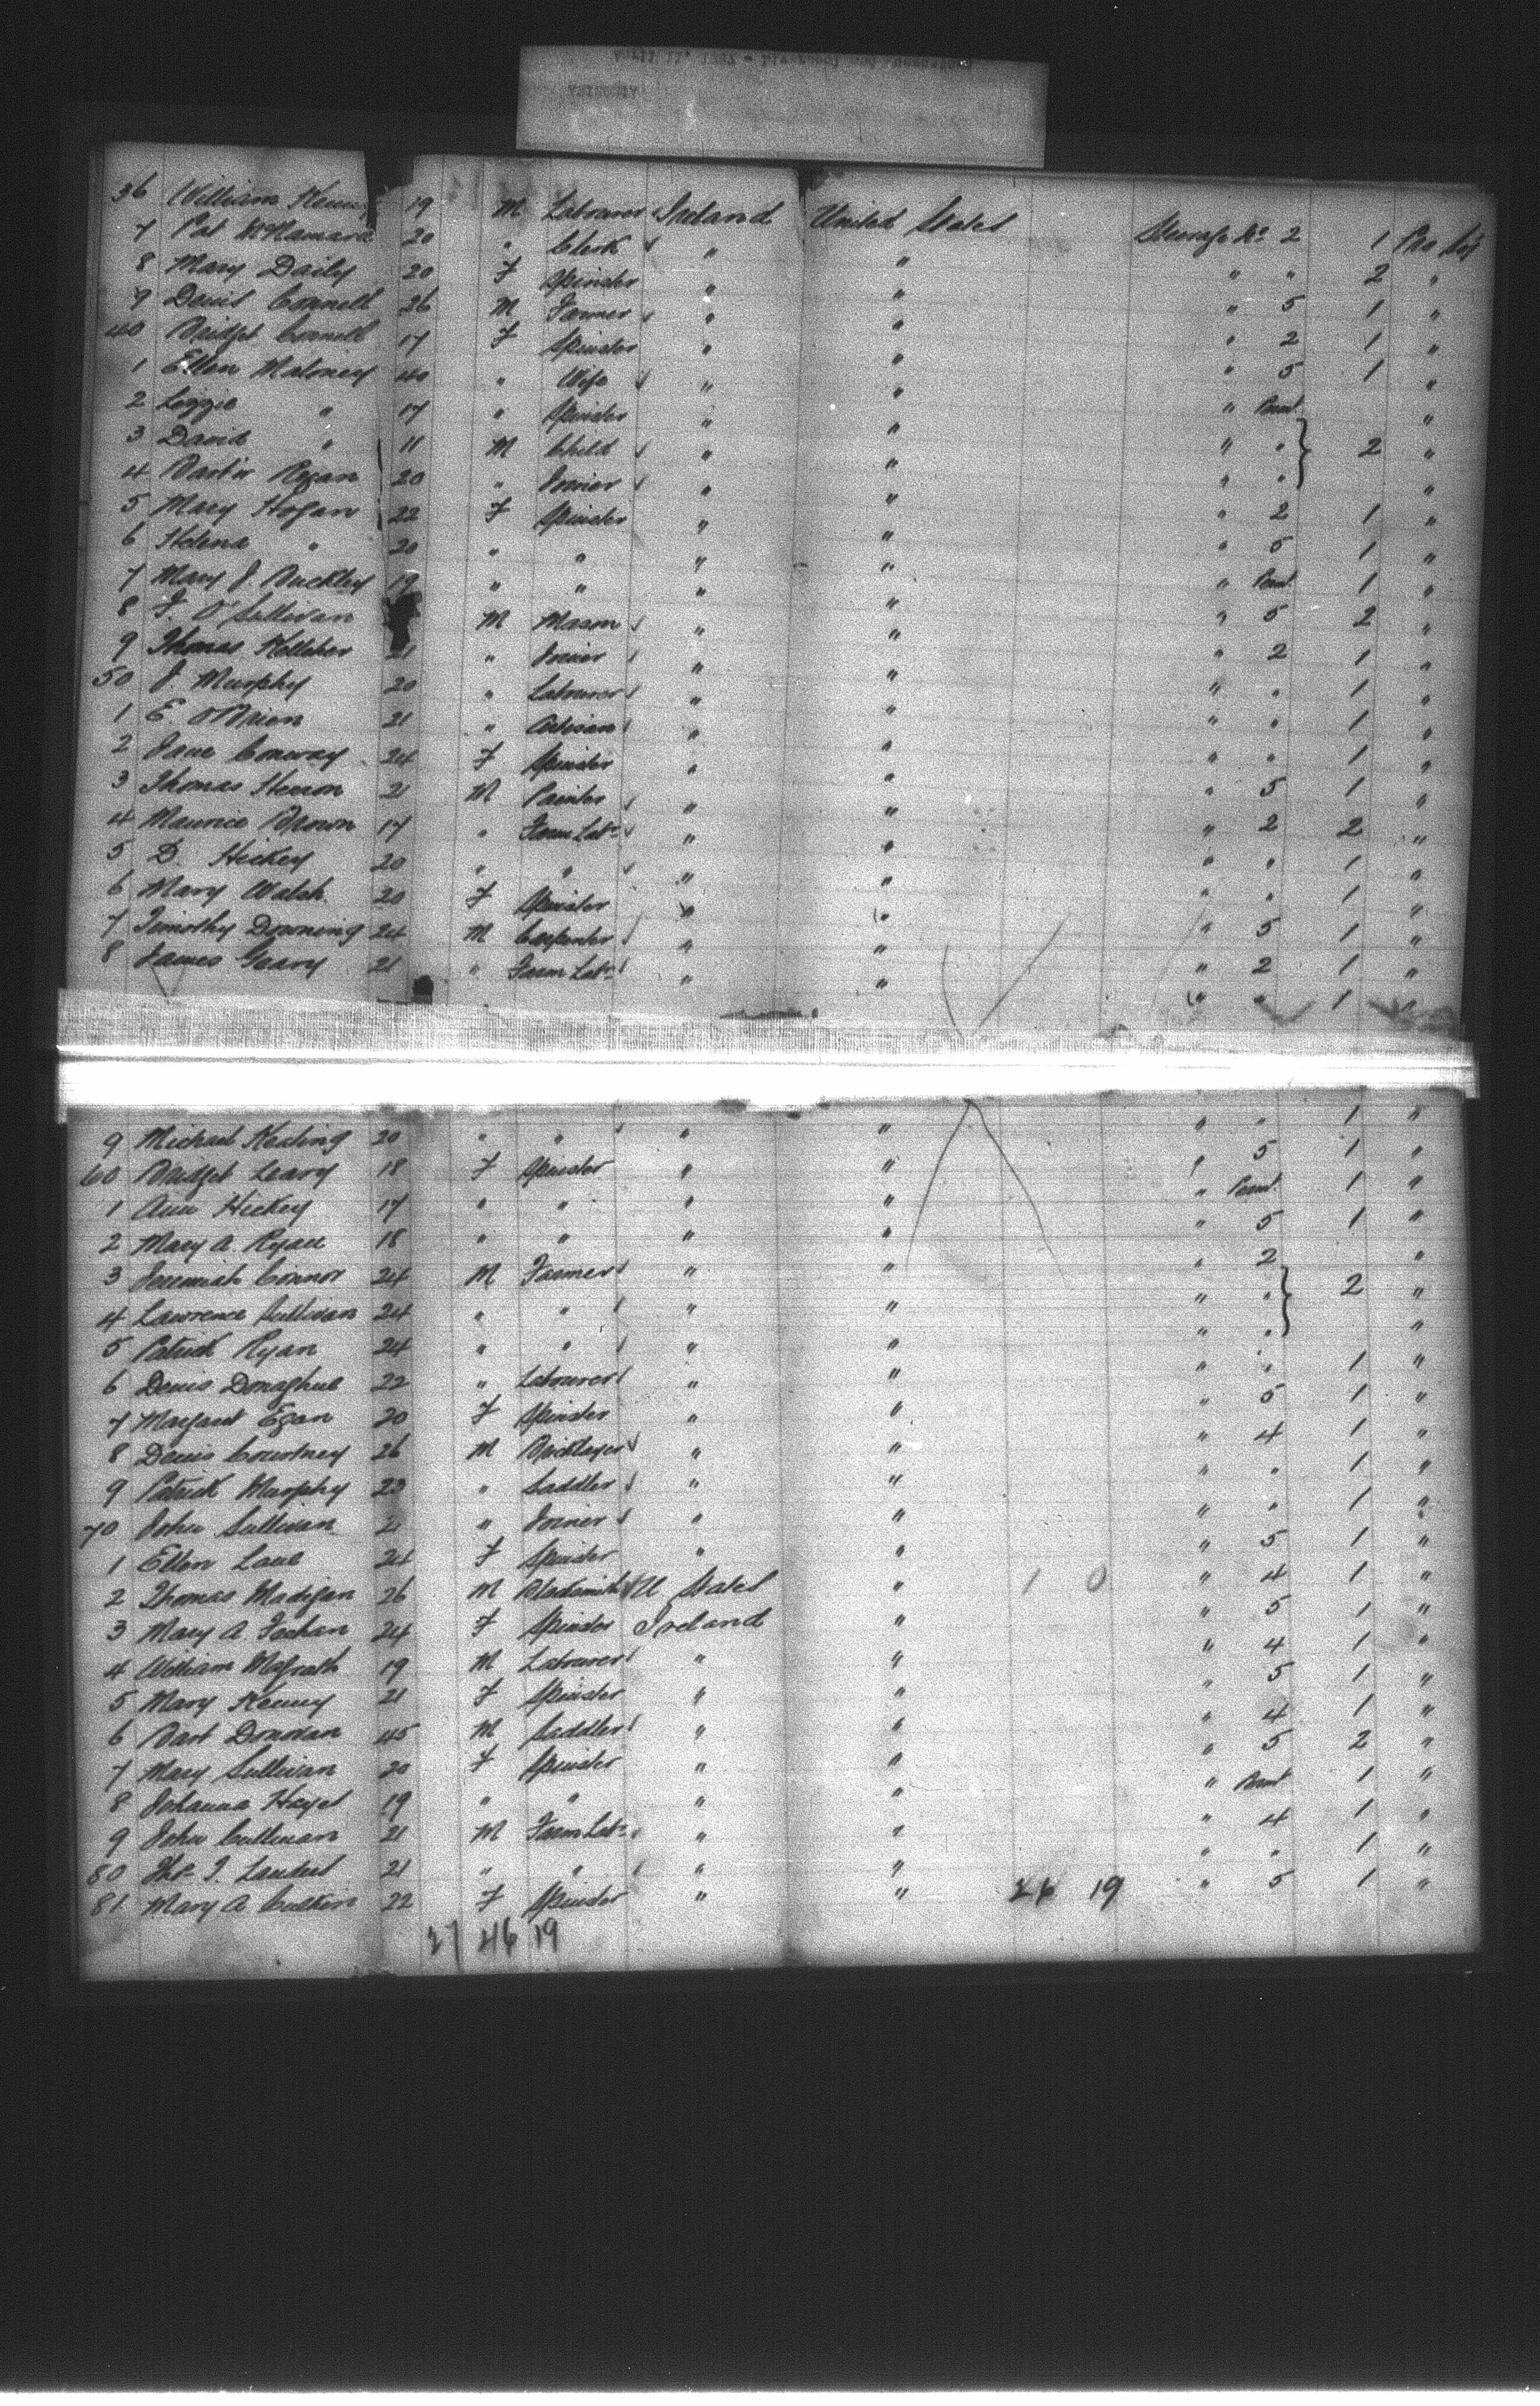 36 William 19 M Labourer Ireland United States Steerage No 2 1 Pro Soj
7 Pat McNamara 20 " Clerk " " " " 2 "
8 Mary Daily 20 F Spinster " " " 5 1 "
9 Denis Connell 26 M Farmer " " " 2 1 "
40 Bridget Connell 17 F Spinster " " " 5 1 "
1 Ellen Maloney 40 " Wife " " " "
2 Lizzie " 17 " Spinster " " " " 2 "
3 David " 11 M Child " " " " "
4 Bart'w Regan 20 " Joiner " " " 2 1 "
5 Mary Hogan 22 F Spinster " " " 5 1 "
6 Helena " 20 " " " " " 1 "
7 Mary J. Buckley 19 " " " " " 5 2 "
8 F. O'Sullivan M Mason " " " 2 1 "
9 Thomas Kelleher 21 " Joiner " " " " 1 "
50 J. Murphy 20 " Labourer " " " " 1 "
1 E O'Brien 21 " Artisan " " " " 1 "
2 Jane Conway 24 F Spinster " " " 5 1 "
3 Thomas Herron 21 M Painter " " " 2 2 "
4 Maurice Brown 17 " Farm Labr " " " " 1 "
5 D. Hickey 20 " " " " " " 1 "
6 Mary Walsh 20 F Spinster " " " 5 1 "
7 Timothy Downing 24 M Carpenter " " " 2 1 "
8 James Geary 21 " Farm Labr " " " " 1 "
9 Michael Keating 20 " " " " " " 1 "
60 Bridget Leary 18 F Spinster " " " 5 1 "
1 Ann Hickey 17 " " " " " 1 "
2 Mary A. Ryan 18 " " " " " 5 1 "
3 Jeremiah Connor 24 M Farmer " " " 2 "
4 Lawrence Sullivan 24 " " " " " " 2 "
5 Patrick Ryan 24 " " " " " " "
6 Denis Donaghue 22 " Labourer " " " " 1 "
7 Margaret Egan 20 F Spinster " " " 5 1 "
8 Denis Courtney 26 M Bricklayer " " " 4 1 "
9 Patrick Murphy 23 " Saddler " " " " 1 "
70 John Sullivan 21 " Joiner " " " " 1 "
1 Ellen Lane 24 F Spinster " " " 5 1 "
2 Thomas Madigan 26 M Blacksmith U States " 1 0 " 4 1 "
3 Mary A. Feehan 24 F Spinster Ireland " " 5 1 "
4 William McGrath 19 M Labourer " " " 4 1 "
5 Mary Kenny 21 F Spinster " " " 5 1 "
6 Bart Donovan 45 M Saddler " " " 4 1 "
7 Mary Sullivan 20 F Spinster " " " 5 2 "
8 Johanna Hayes 19 " " " " " 1 "
9 John Cullinan 21 M Farm Labr " " " 4 1 "
80 Thos. J. 21 " " " " " " 1 "
81 Mary A 22 F Spinster " " 26 19 " 5 1 "
27 46 19